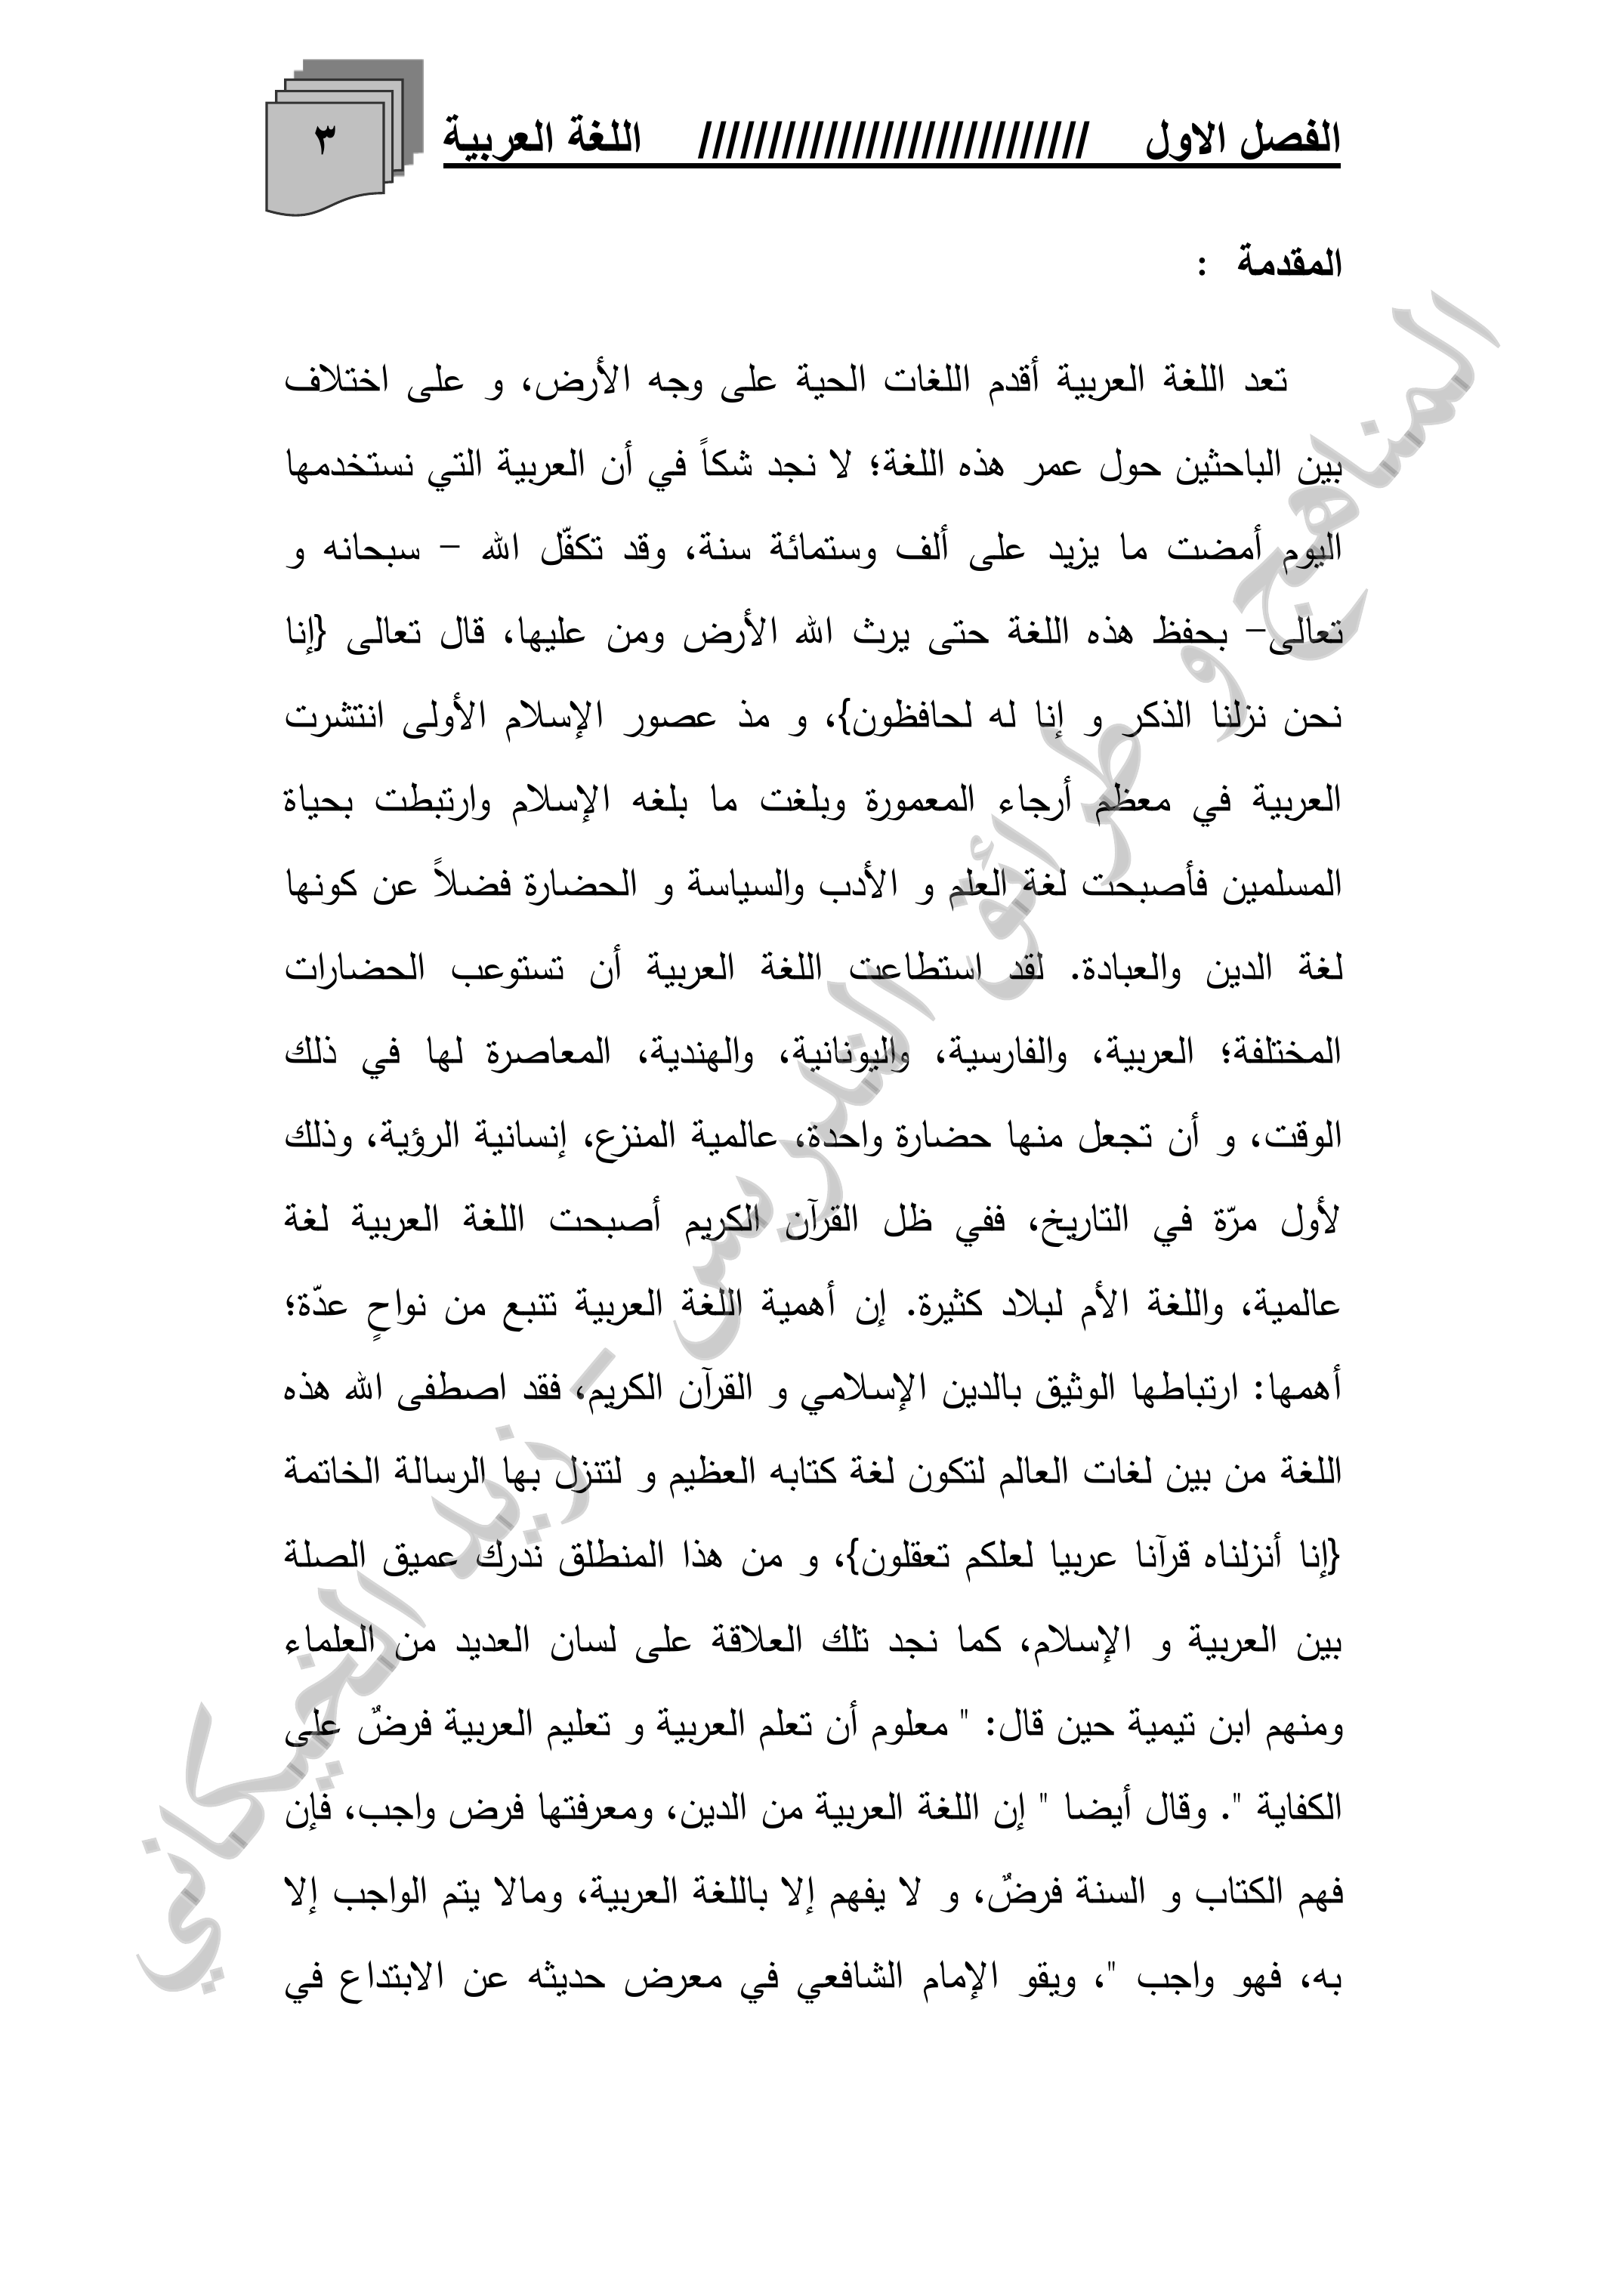 الفصل الاول //////////////////////////// اللغة العربية
٣
المقدمة :
تعد اللغة العربية أقدم اللغات الحية على وجه الأرض، و على اختلاف
بين الباحثين حول عمر هذه اللغة؛ لا نجد شكاً في أن العربية التي نستخدمها
اليوم أمضت ما يزيد على ألف وستمائة سنة، وقد تكفّل الله – سبحانه و
تعالى– بحفظ هذه اللغة حتى يرث الله الأرض ومن عليها، قال تعالى {إنا
نحن نزلنا الذكر و إنا له لحافظون}، و مذ عصور الإسلام الأولى انتشرت
العربية في معظم أرجاء المعمورة وبلغت ما بلغه الإسلام وارتبطت بحياة
المسلمين فأصبحت لغة العلم و الأدب والسياسة و الحضارة فضلاً عن كونها
لغة الدين والعبادة. لقد استطاعت اللغة العربية أن تستوعب الحضارات
المختلفة؛ العربية، والفارسية، واليونانية، والهندية، المعاصرة لها في ذلك
الوقت، و أن تجعل منها حضارة واحدة، عالمية المنزع، إنسانية الرؤية، وذلك
لأول مرّة في التاريخ، ففي ظل القرآن الكريم أصبحت اللغة العربية لغة
عالمية، واللغة الأم لبلاد كثيرة. إن أهمية اللغة العربية تنبع من نواحٍ عدّة؛
أهمها: ارتباطها الوثيق بالدين الإسلامي و القرآن الكريم، فقد اصطفى الله هذه
اللغة من بين لغات العالم لتكون لغة كتابه العظيم و لتنزل بها الرسالة الخاتمة
{إنا أنزلناه قرآنا عربيا لعلكم تعقلون}، و من هذا المنطلق ندرك عميق الصلة
بين العربية و الإسلام، كما نجد تلك العلاقة على لسان العديد من العلماء
ومنهم ابن تيمية حين قال: " معلوم أن تعلم العربية و تعليم العربية فرضٌ على
الكفاية ". وقال أيضا " إن اللغة العربية من الدين، ومعرفتها فرض واجب، فإن
فهم الكتاب و السنة فرضٌ، و لا يفهم إلا باللغة العربية، ومالا يتم الواجب إلا
به، فهو واجب "، ويقو الإمام الشافعي في معرض حديثه عن الابتداع في
المناهج و طرائق التدريس - زيد الخيكاني